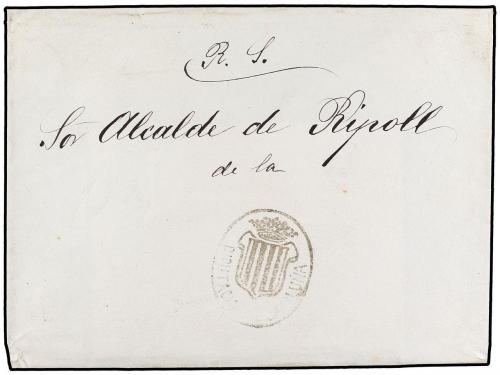 R. S.
Sor Alcalde de Ripoll
de la